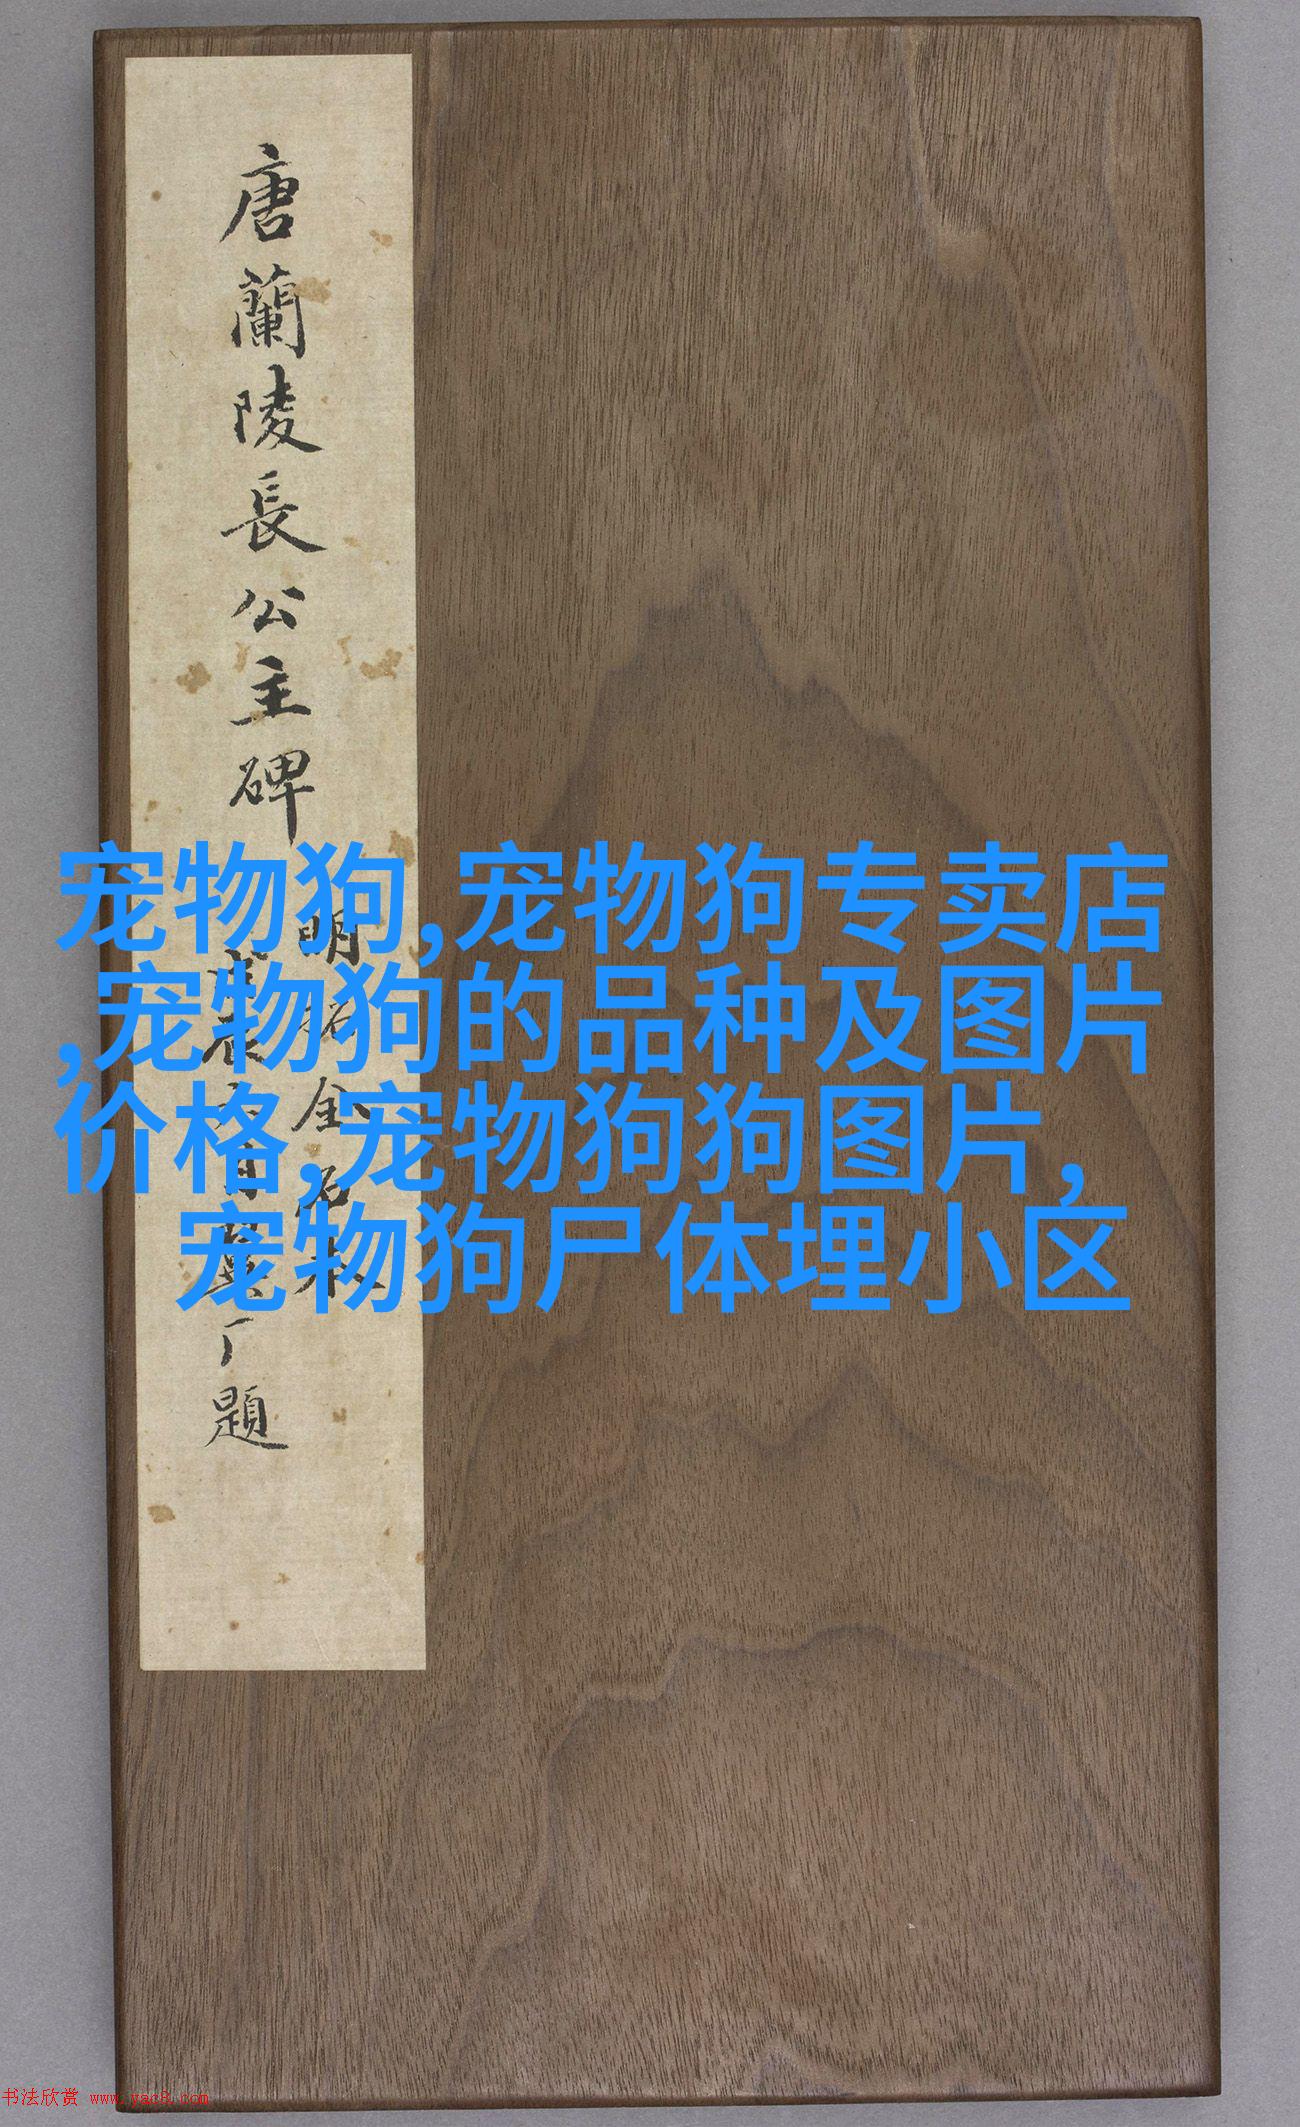 唐蘭陵長公主碑
明拓 金石
題
宠物狗,宠物狗专卖店
,宠物狗的品种及图片
价格,宠物狗狗图片,
宠物狗尸体埋小区
书法欣赏 www.yac8.com